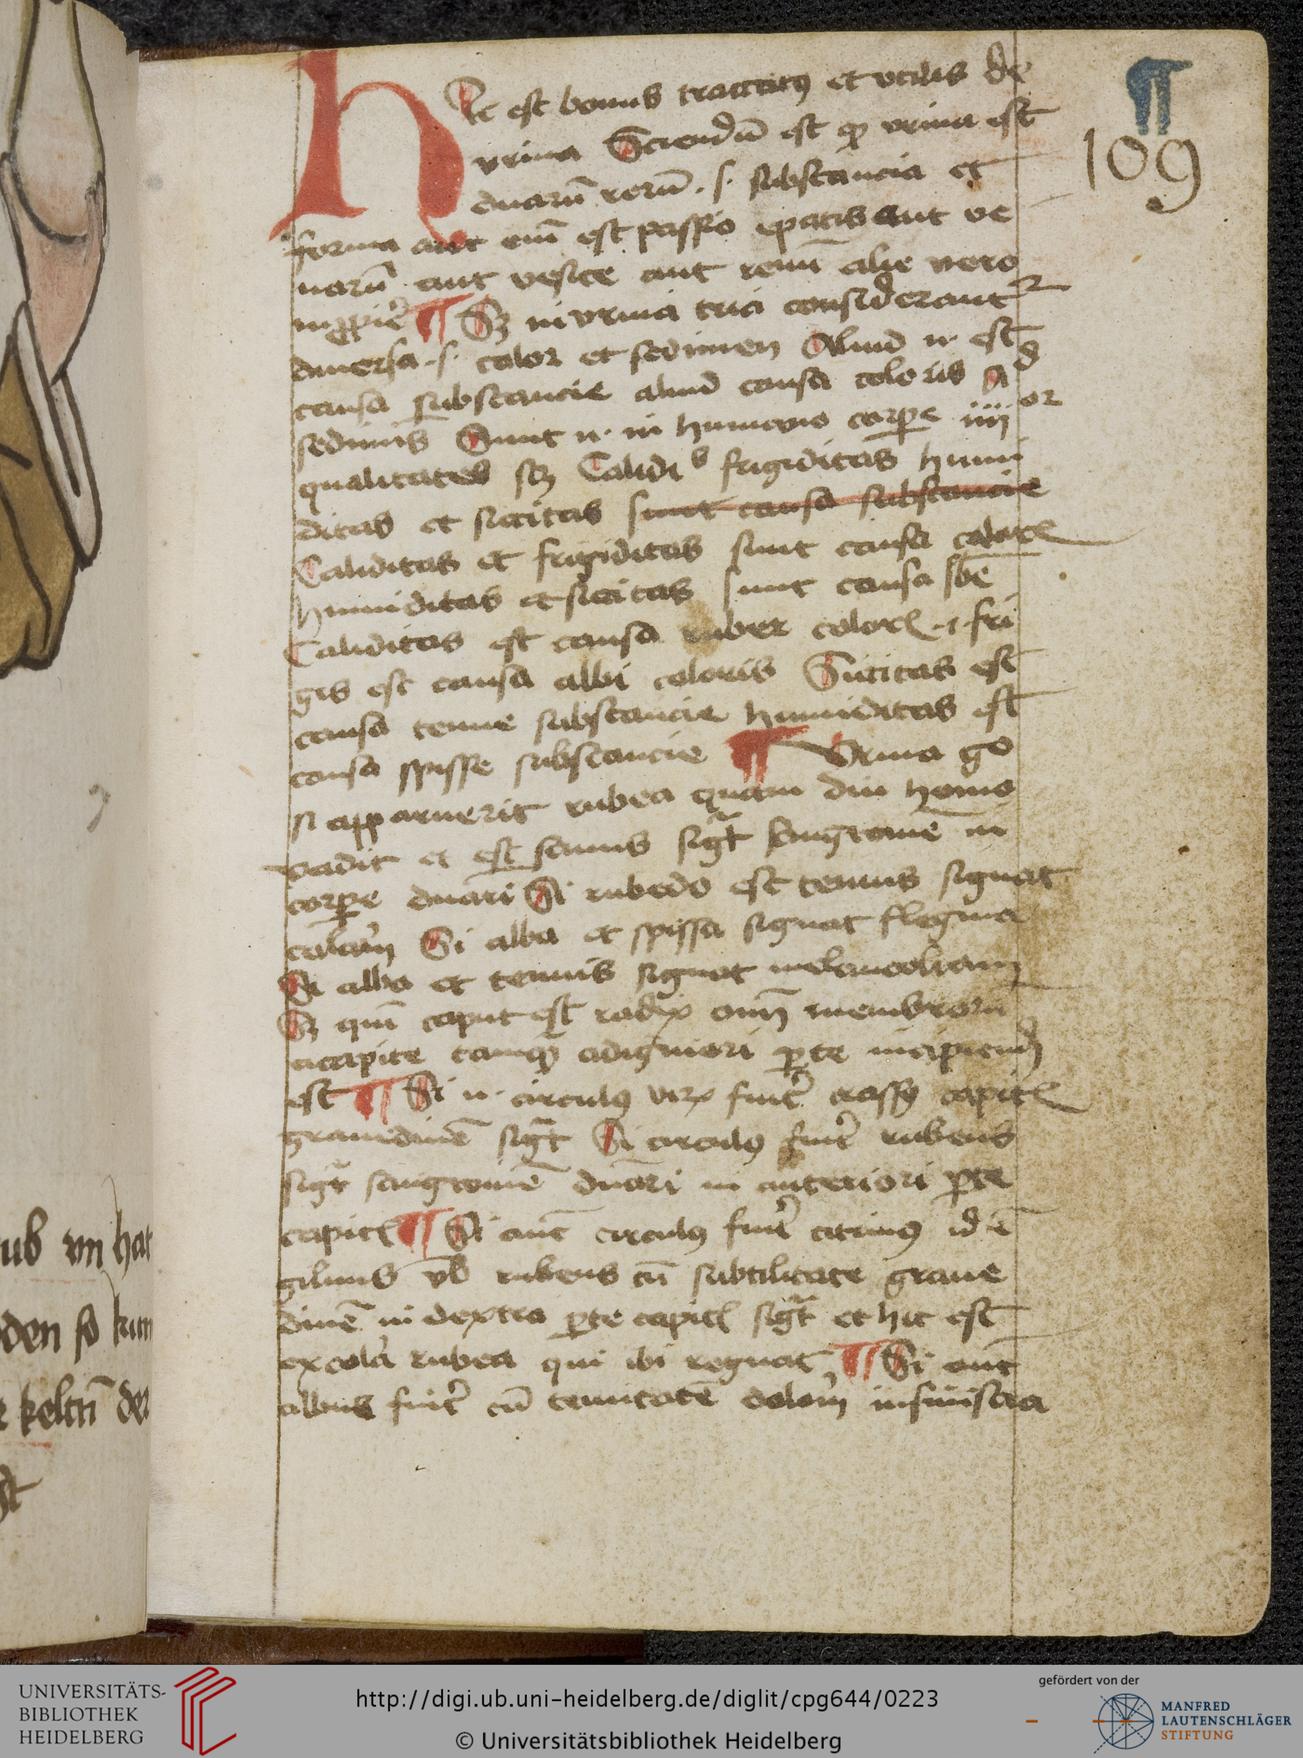 Hic est bonus tractatꝰ et vtilis de
vrina Sciendū est ꝙ vrina est
duarū rerū .s. substancia et
forma aut eīn est passio epatis aut ve
narū aut vesice aut renū alie vero
Sꝫ in vrina tria considerant
diuersa .s. color et sedimen Aliud n. est
causa substancie aliud causa coloris
sedimīs Sunt n. in humano corpore iiii or
qualitates sꝫ Calidi frigiditas humi
ditas et siccitas sunt causa substancie
Caliditas et frigiditas sunt causa coloris
humiditas et siccitas sunt causa sbē
Caliditas est causa ruber coloris fri
gis est causa albi coloris Siccitas est
causa tenue substancie humiditas est
causa spisse substancie ¶ Vrina go
si apparuerit rubea quam diu homo
vadit et est sanus in
corpore dn̄ari Si rubedo est tenuis signat
Si alba et spissa signat flegma
Si alba et tenuis signat melancoliam
Sꝫ qm̄ caput est radix om̄ membrorū
a capite tamꝙ a digniori parte incipiendū
est ¶ Si n. circulꝰ fuit̄ crassꝰ capitis
grauedinē sigt̄ Si circulꝰ fuit̄ rubens
sigt̄ sanguinē dn̄ari in anteriori parte
capitis ¶ Si aut̄ circulꝰ fuit̄ citrinꝰ id ē
giluus vl̄ rubens cū subtilitate graue
dinē in dextra parte capitis sigt̄ et hic est
ex cola rubea qui ibi regnat ¶ Si aut̄
albus fuit̄ cū tenuitatē dolorē in sinistra
109
ub vn hat
den so kum
keltn̄ der
UNIVERSITÄTS-
BIBLIOTHEK
HEIDELBERG
http://digi.ub.uni-heidelberg.de/diglit/cpg644/0223
© Universitätsbibliothek Heidelberg
gefördert von der
MANFRED
LAUTENSCHLÄGER
STIFTUNG